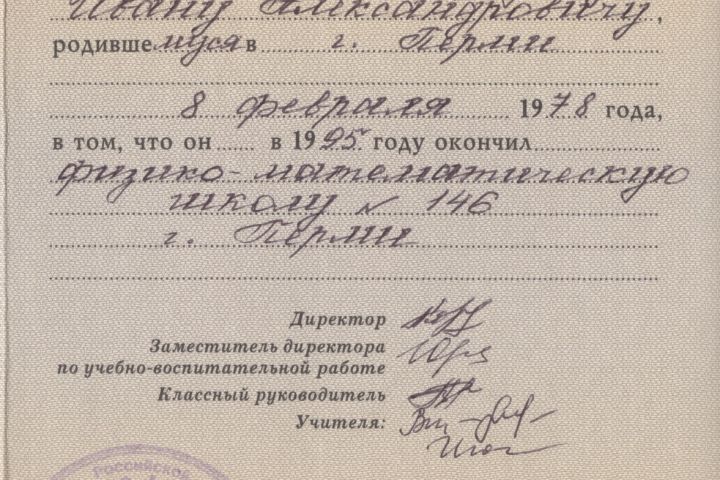 Ивану Александровичу,
родившемуся в г. Перми
8 февраля 1978 года,
в том, что он в 1995 году окончил
физико-математическую
школу № 146
г. Перми
Директор
Заместитель директора
по учебно-воспитательной работе
Классный руководитель
Учителя:
Российской